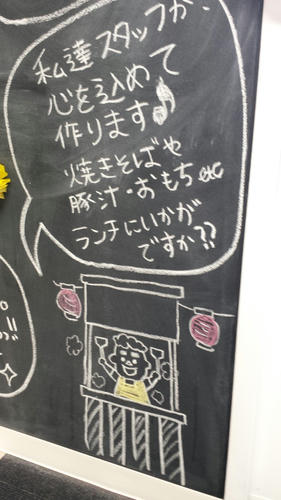 私達スタッフが、
心を込めて
作ります♪
焼きそばや
豚汁・おもち etc
ランチにいかが
ですか??